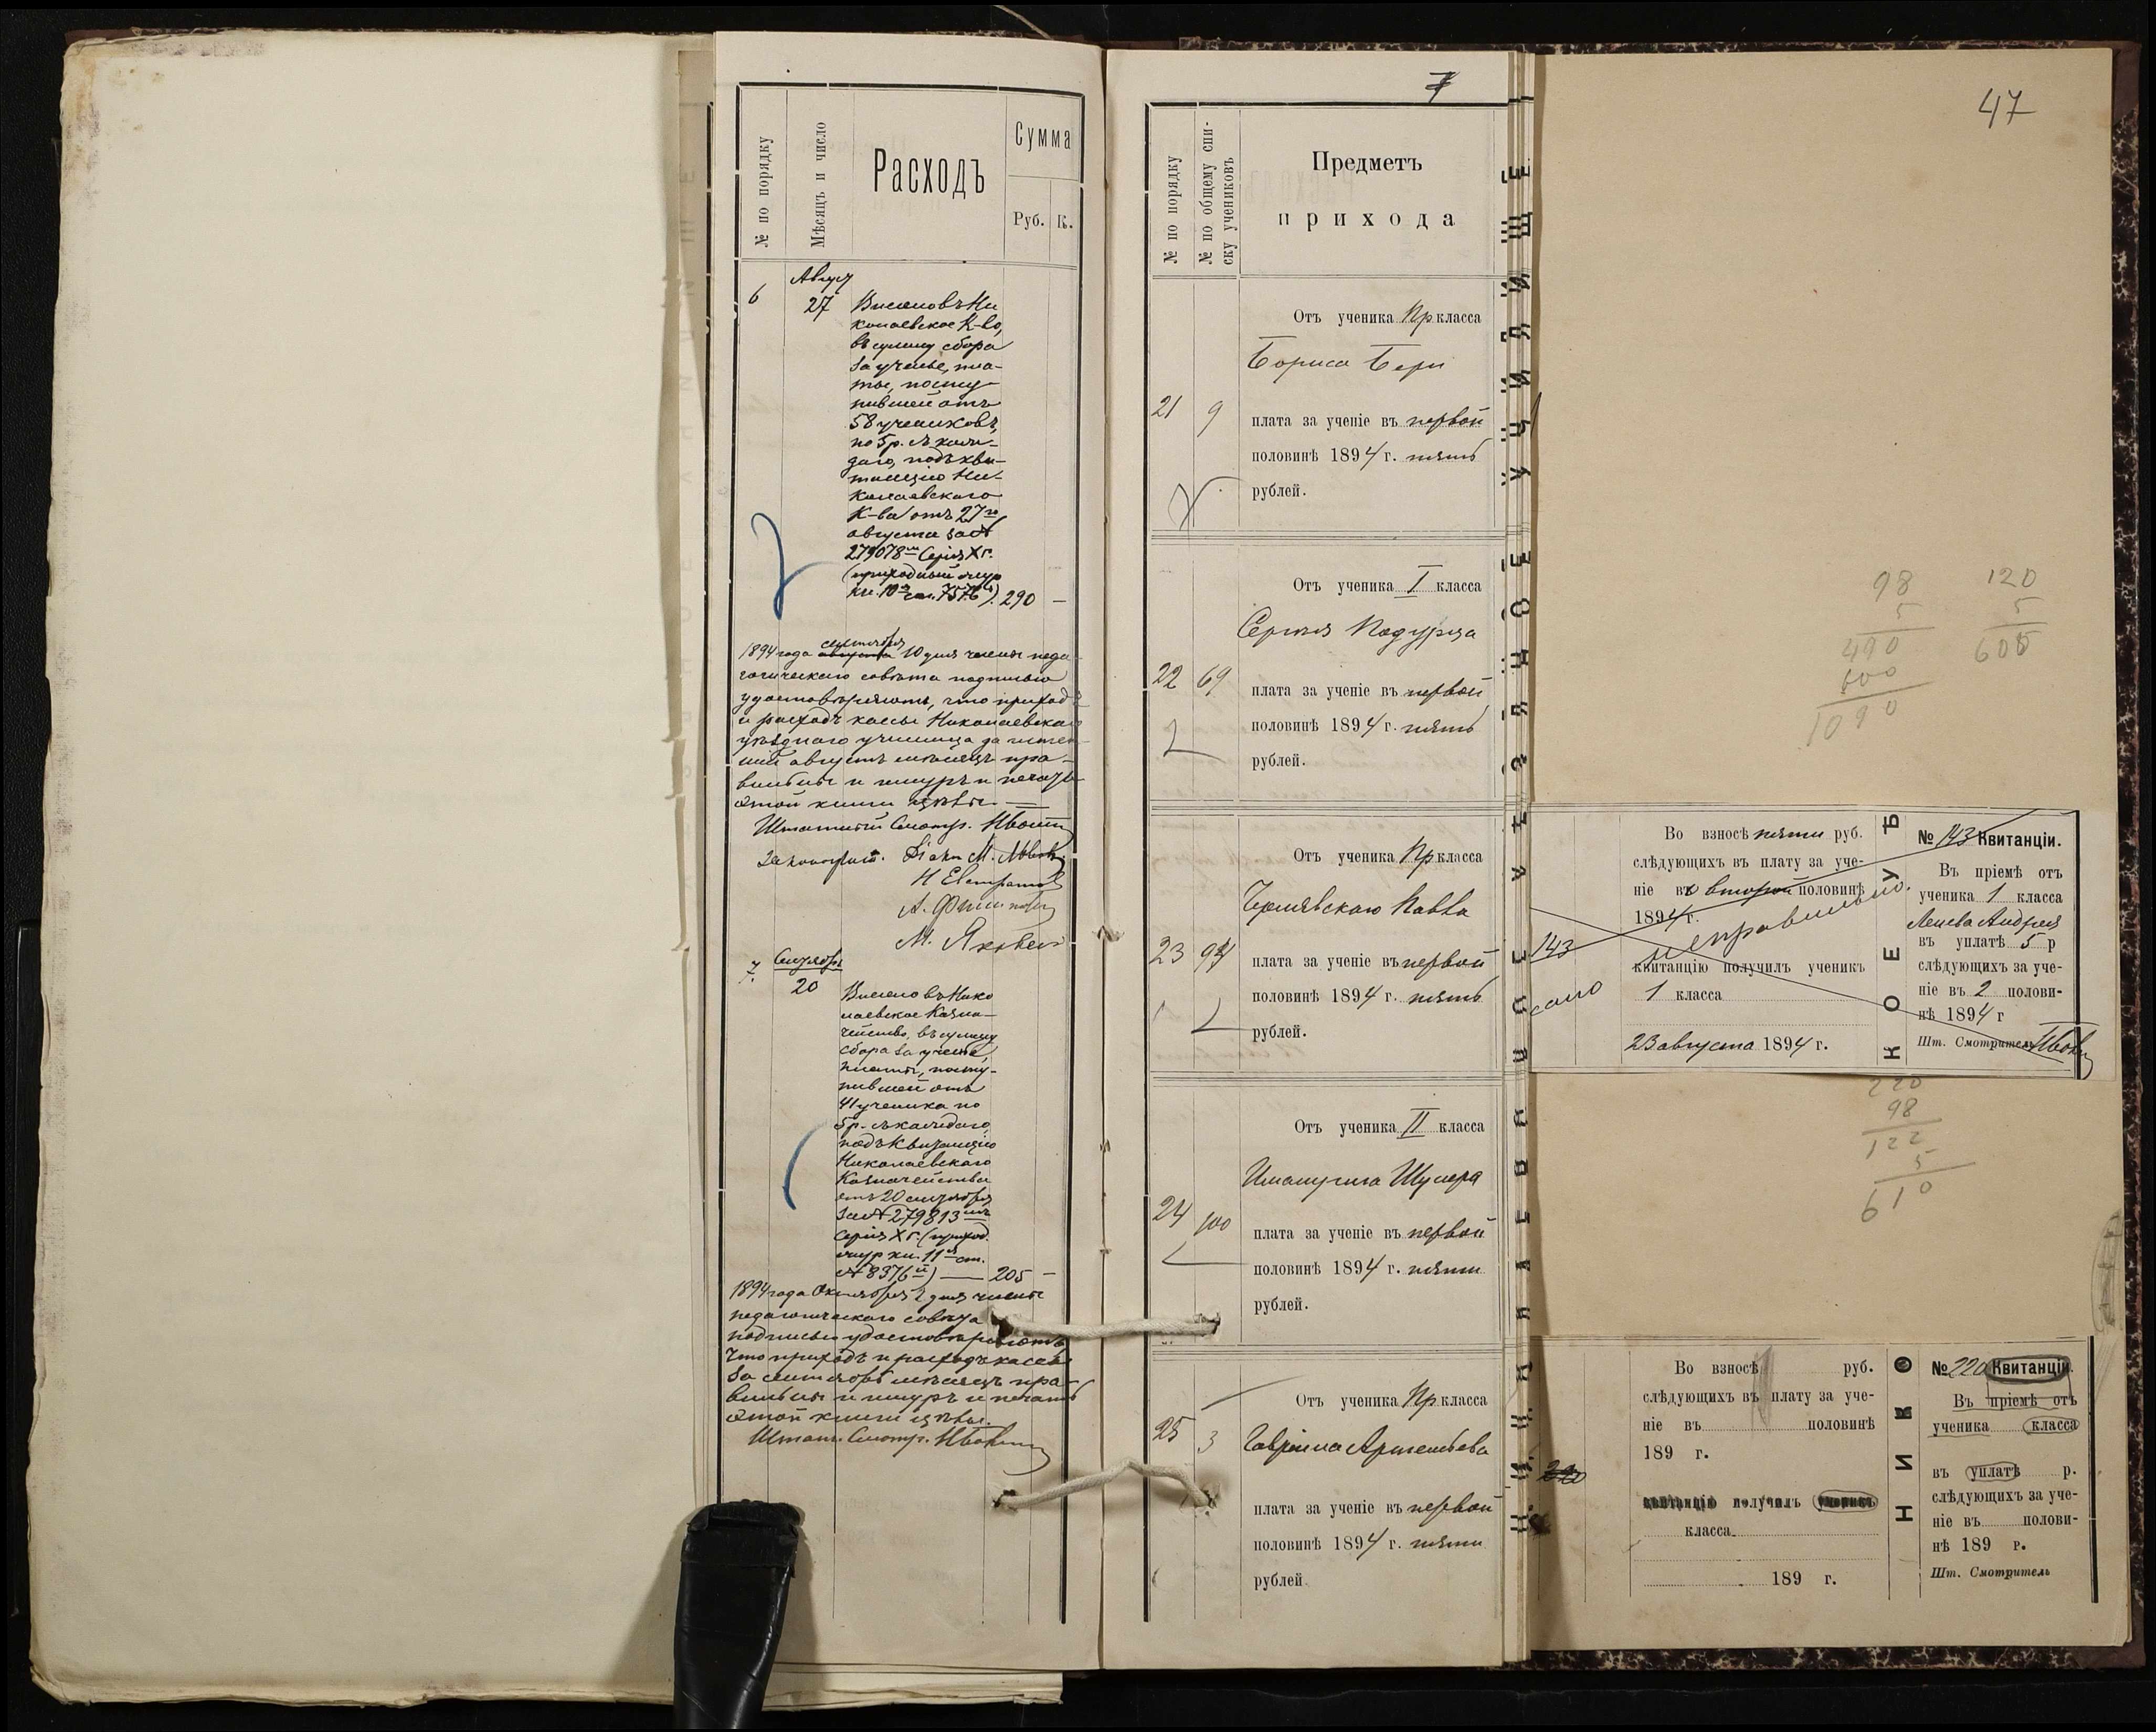 № по порядку
Мѣсяцъ и число
Расходъ
Сумма
Руб.
К.
6
27
Внесено въ Ни
колаевское К-во,
въ сумму сбора
за ученье, пла-
ты, посту-
пившей отъ
58 учениковъ,
по 5 р. съ каж-
даго, подъ кви-
танцію Ни-
колаевскаго
К-ва отъ 27го
августа за №
279078
Серія X г.
(приходный
290 —
1894 года сентября 10 дня члены педа-
гогическаго совѣта подписью
удостовѣряютъ, что приходъ
и расходъ кассы Николаевскаго
уѣзднаго училища за
августъ мѣсяцъ пра-
вильны и шнуръ и печать
этой книги цѣлы. —
Штатный Смотр.
7.
20
Внесено въ Нико
лаевское Казна-
чейство, въ сумму
сбора за ученье,
платы, посту-
пившей отъ
41 ученика по
5 р. съ каждаго,
подъ квитанцію
Николаевскаго
Казначейства
отъ 20 сентября
за № 279813
Серія X г. (приход.
шнур кн. 11 ст.
№ 8376) — 205 —
1894 года Октября 2 дня члены
педагогическаго совѣта
подписью удостовѣряютъ,
что приходъ и расходъ кассы
за сентябрь мѣсяцъ пра-
вильны и шнуръ и печать
этой книги цѣлы.
Штатн. Смотр.
7
№ по порядку
№ по общему спи-
ску учениковъ
Предметъ
прихода
Отъ ученика Пр класса
Бориса
21 9
плата за ученіе въ первой
половинѣ 1894 г. пять
рублей.
Отъ ученика I класса
Сергѣя
22 69
плата за ученіе въ первой
половинѣ 1894 г. пять
рублей.
Отъ ученика Пр класса
Павла
23
плата за ученіе въ первой
половинѣ 1894 г. пять
рублей.
Отъ ученика II класса
24 100
плата за ученіе въ первой
половинѣ 1894 г. пяти
рублей.
Отъ ученика Пр. класса
Гавріила Артемьева
25 3
плата за ученіе въ первой
половинѣ 1894 г. пяти
рублей
47
98
5
490
600
1090
120
5
600
143
Во взносѣ пяти руб.
слѣдующихъ въ плату за уче-
ніе въ второй половинѣ
1894 г.
неправильно.
квитанцію получилъ ученикъ
1 класса
23 августа 1894 г.
КОЕ УЪ
№ 143 Квитанціи.
Въ пріемѣ отъ
ученика 1 класса
Андрея
въ уплатѣ 5 р
слѣдующихъ за уче-
ніе въ 2 полови-
нѣ 1894 г
Шт. Смотритель
220
98
122
5
610
220
Во взносѣ руб.
слѣдующихъ въ плату за уче-
ніе въ половинѣ
189 г.
квитанцію получилъ ученикъ
класса
189 г.
НИКО
№ 220 Квитанціи.
Въ пріемѣ отъ
ученика класса
въ уплатѣ р.
слѣдующихъ за уче-
ніе въ полови-
нѣ 189 г.
Шт. Смотритель